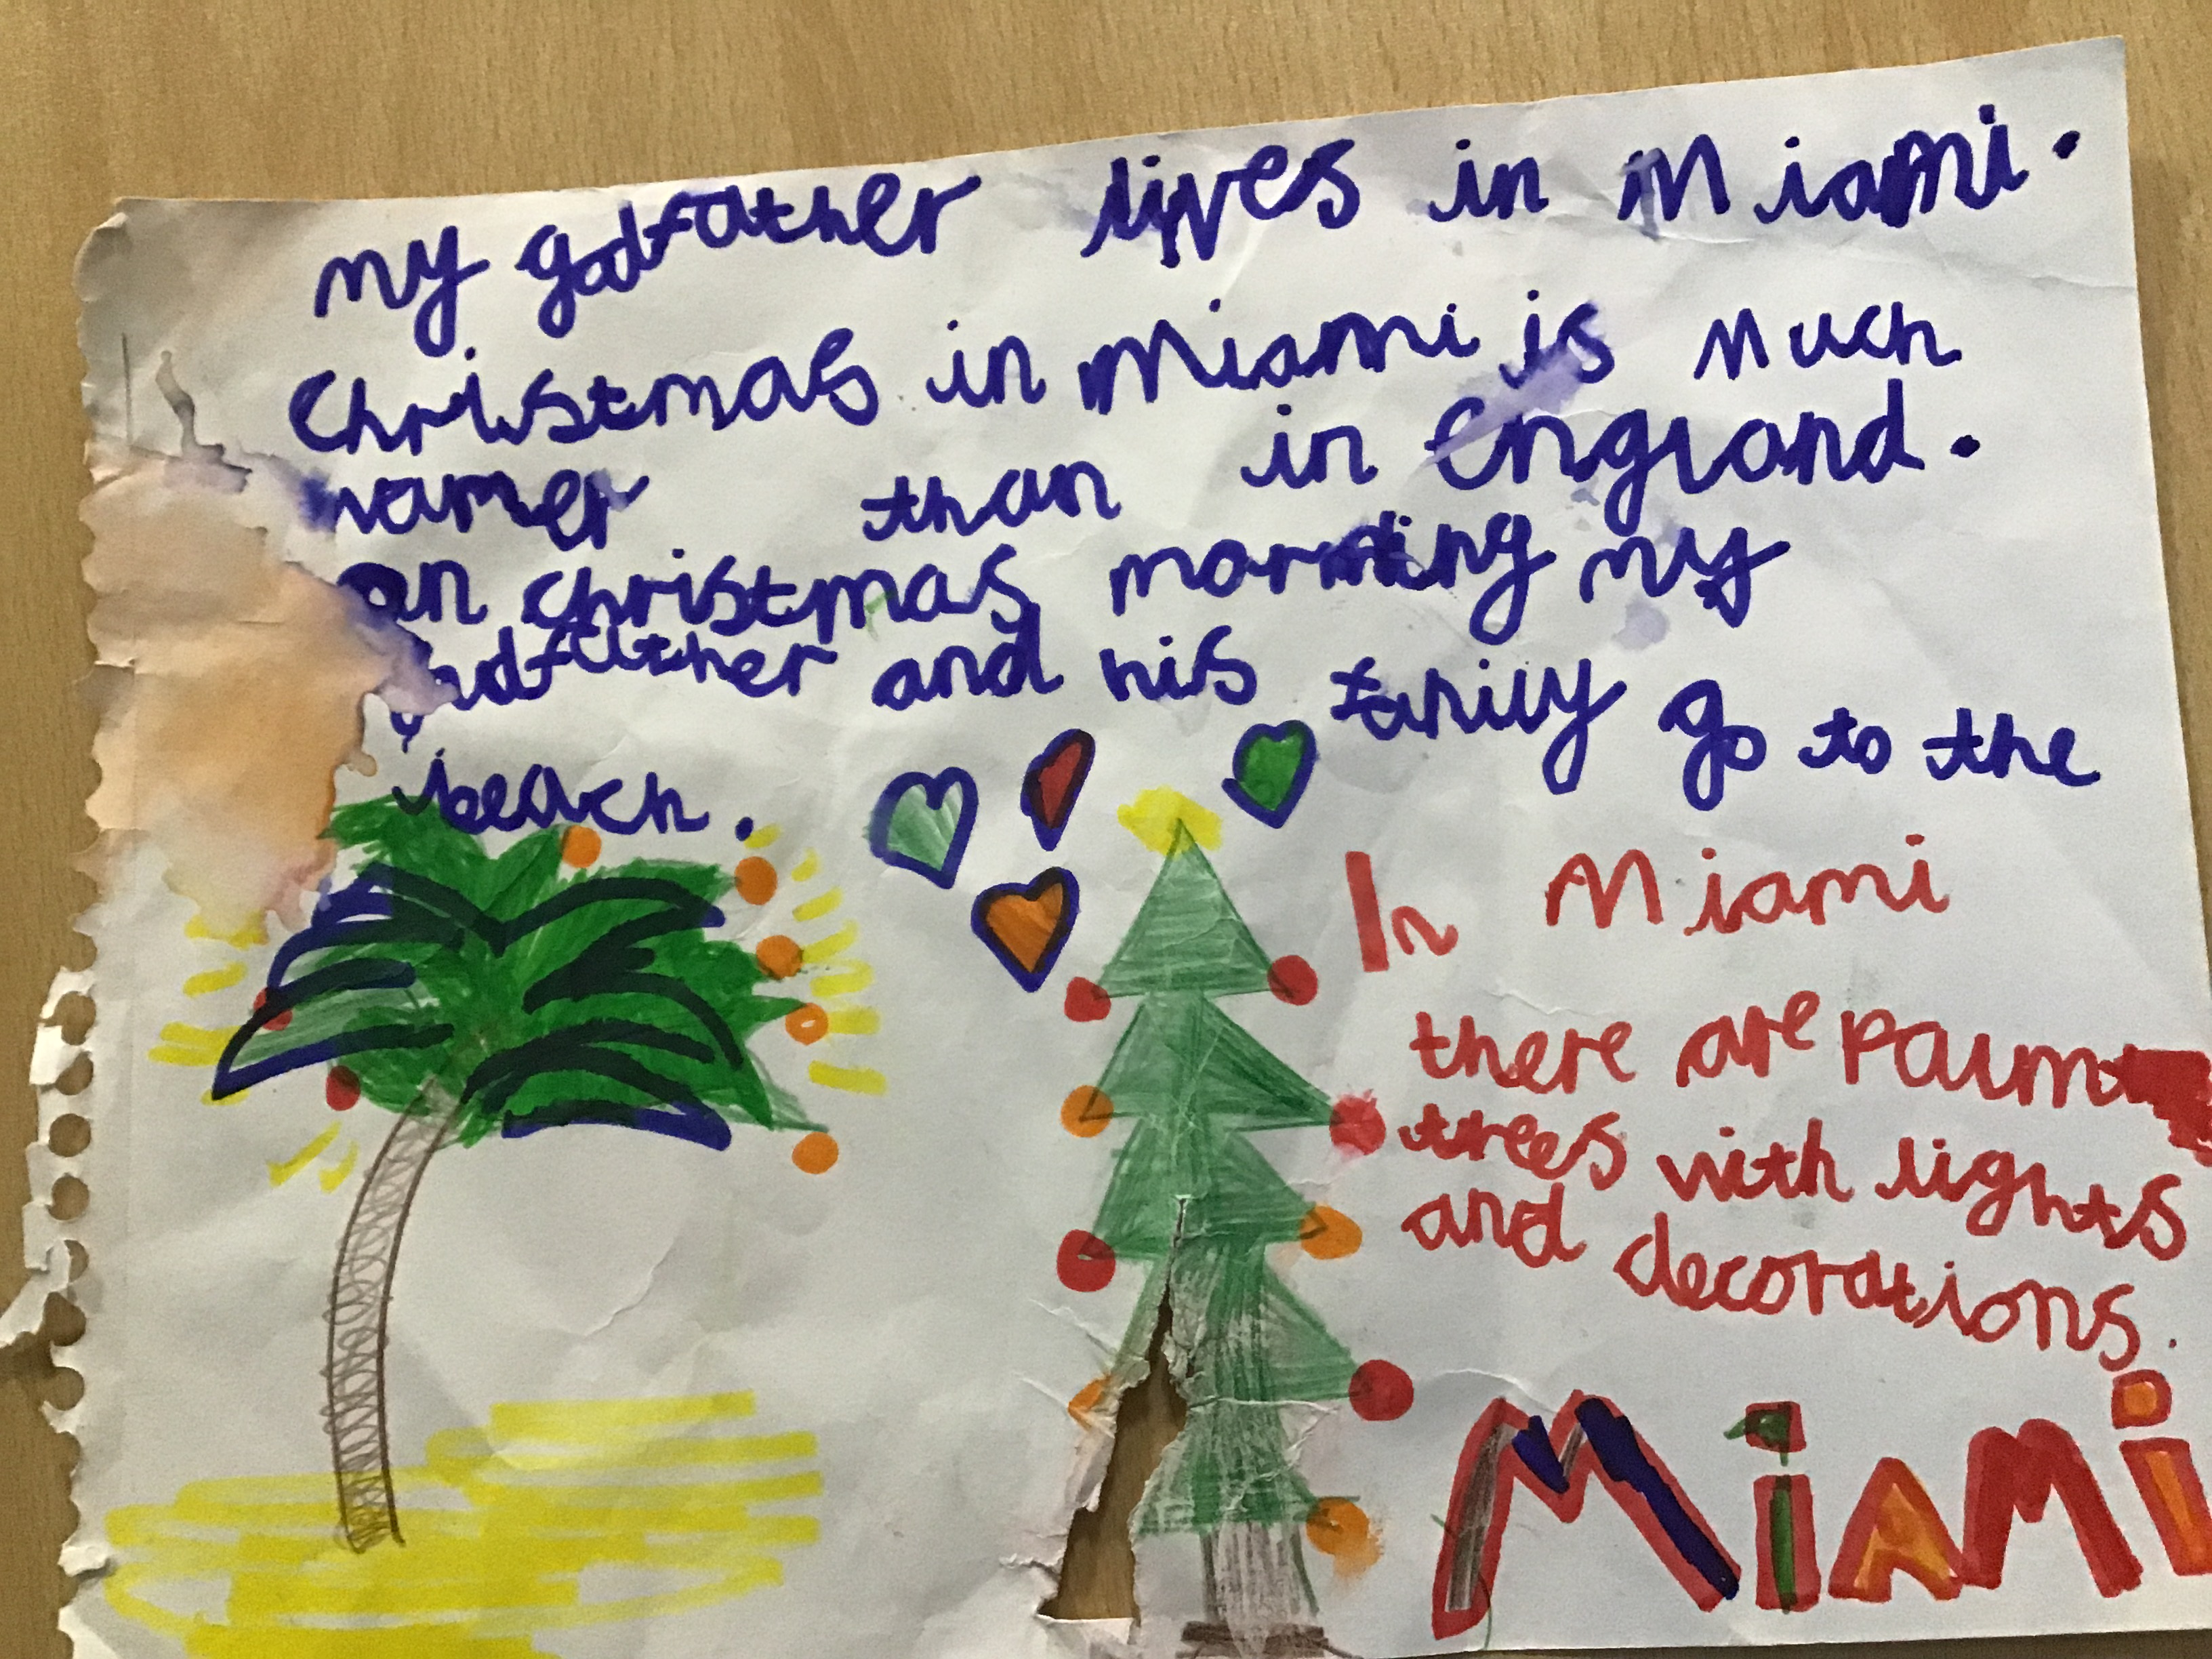 my godfather lives in Miami.
Christmas in Miami is Much
warmer than in England.
on christmas morning my
godfather and his family go to the
beach.
In Miami
there are paum
trees with lights
and decorations.
Miami